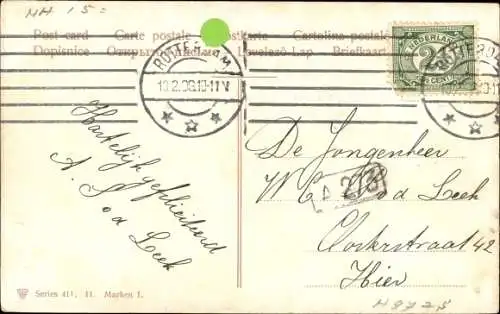 NH 15=
Post-card Carte postale Postkarte Cartolina postale
Dopisnice Открытое Levelező-Lap Briefkaart
NEDERLAND
2½
CENT
ROTTERDAM
10.2.06.10-11V
Hartelijk gefeliciteerd
A. v d Leek
De Jongenheer
W C v d Leek
Oosterstraat 42
Hier
213
Series 411, 11. Marken I.
H8725